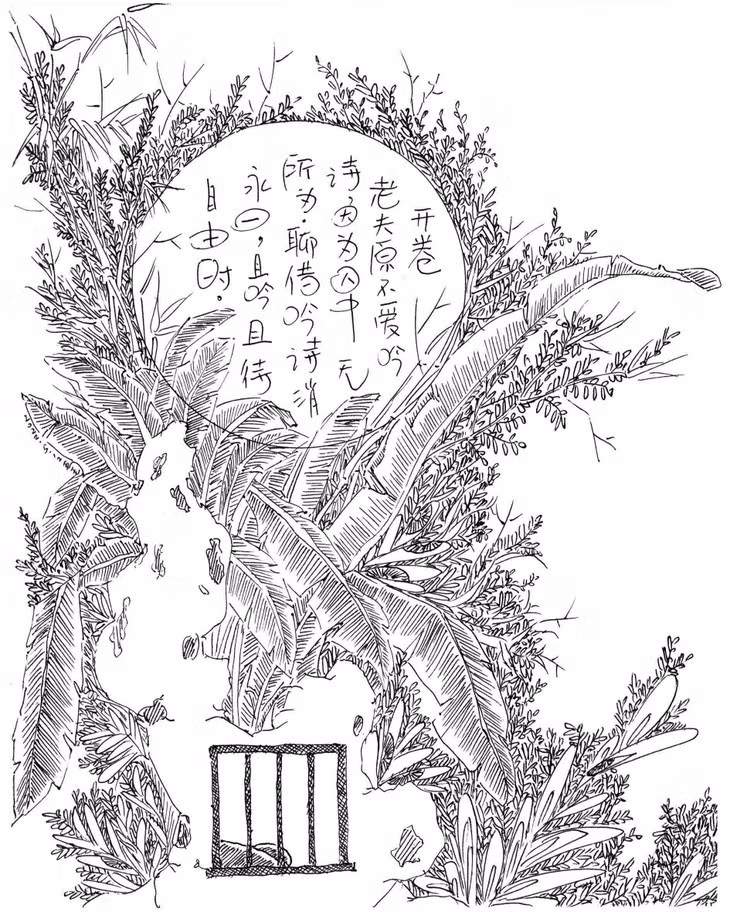 开卷
老夫原不爱吟
诗,因为囚中无
所为.聊借吟诗消
永日,且吟且待
自由时。